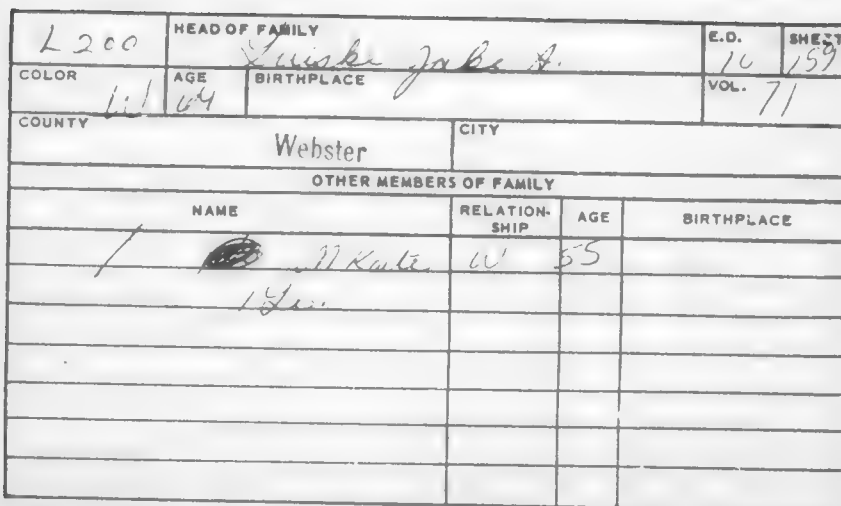 L 200 HEAD OF FAMILY Jake A. E.D. 10 SHEET 159
COLOR W AGE 64 BIRTHPLACE VOL. 71
COUNTY Webster CITY
OTHER MEMBERS OF FAMILY
NAME RELATION-SHIP AGE BIRTHPLACE
N Kate W 55